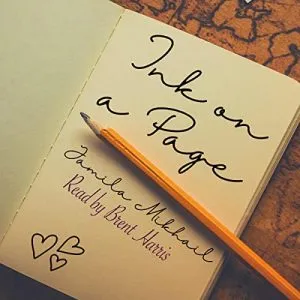 Ink on
a Page
Jamila Mikhail
Read by Brent Harris